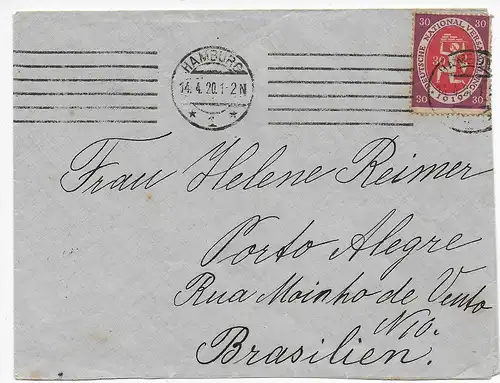 HAMBURG
14.4.20.1-2N
* 2 *
30 30
DEUTSCHE NATIONALVERSAMMLUNG
1919
30 30
Frau Helene Reimer
Porto Alegre
Rua Moinho de Vento
N10.
Brasilien.